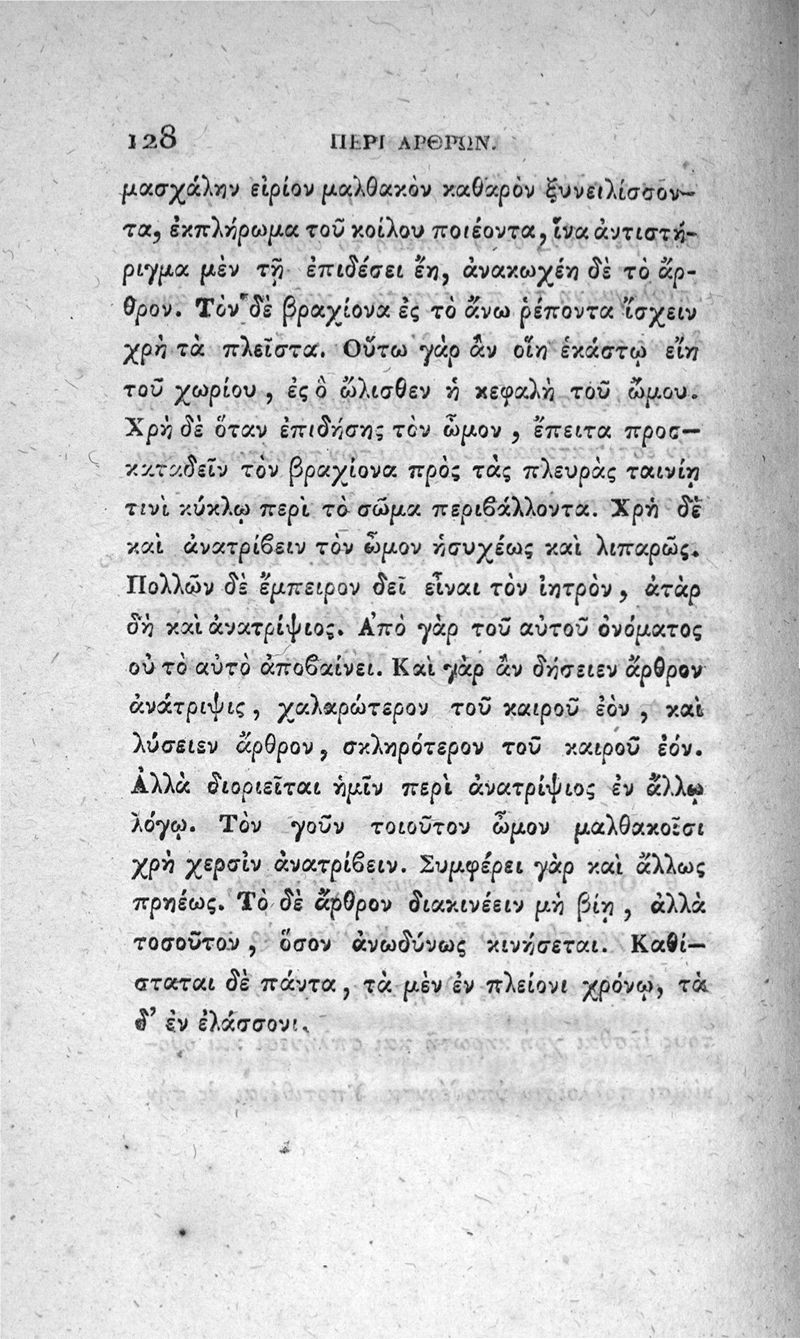 128 ΠΕΡΙ ΑΡΘΡΩΝ.
μασχάλην εἰρίον μαλθακὸν καθαρὸν ξυνειλίσσον-
τα, ἐκπλήρωμα τοῦ κοίλου ποιέοντα, ἵνα ἀντιστή-
ριγμα μὲν τῇ ἐπιδέσει ἔῃ, ἀνακωχέῃ δὲ τὸ ἄρ-
θρον. Τὸν δὲ βραχίονα ἐς τὸ ἄνω ῥέποντα ἴσχειν
χρὴ τὰ πλεῖστα. Οὕτω γὰρ ἂν οἵη ἑκάστῳ εἴη
τοῦ χωρίου, ἐς ὃ ὤλισθεν ἡ κεφαλὴ τοῦ ὤμου.
Χρὴ δὲ ὅταν ἐπιδήσῃς τὸν ὦμον, ἔπειτα προσ-
καταδεῖν τὸν βραχίονα πρὸς τὰς πλευρὰς ταινίῃ
τινὶ κύκλῳ περὶ τὸ σῶμα περιβάλλοντα. Χρὴ δὲ
καὶ ἀνατρίβειν τὸν ὦμον ἡσυχέως καὶ λιπαρῶς.
Πολλῶν δὲ ἔμπειρον δεῖ εἶναι τὸν ἰητρὸν, ἀτὰρ
δὴ καὶ ἀνατρίψιος. Ἀπὸ γὰρ τοῦ αὐτοῦ ὀνόματος
οὐ τὸ αὐτὸ ἀποβαίνει. Καὶ γὰρ ἂν δήσειεν ἄρθρον
ἀνάτριψις, χαλαρώτερον τοῦ καιροῦ ἐὸν, καὶ
λύσειεν ἄρθρον, σκληρότερον τοῦ καιροῦ ἐόν.
Ἀλλὰ διοριεῖται ἡμῖν περὶ ἀνατρίψιος ἐν ἄλλῳ
λόγῳ. Τὸν γοῦν τοιοῦτον ὦμον μαλθακοῖσι
χρὴ χερσὶν ἀνατρίβειν. Συμφέρει γὰρ καὶ ἄλλως
πρηέως. Τὸ δὲ ἄρθρον διακινέειν μὴ βίῃ, ἀλλὰ
τοσοῦτον, ὅσον ἀνωδύνως κινήσεται. Καθί-
σταται δὲ πάντα, τὰ μὲν ἐν πλείονι χρόνῳ, τὰ
δ’ ἐν ἐλάσσονι.